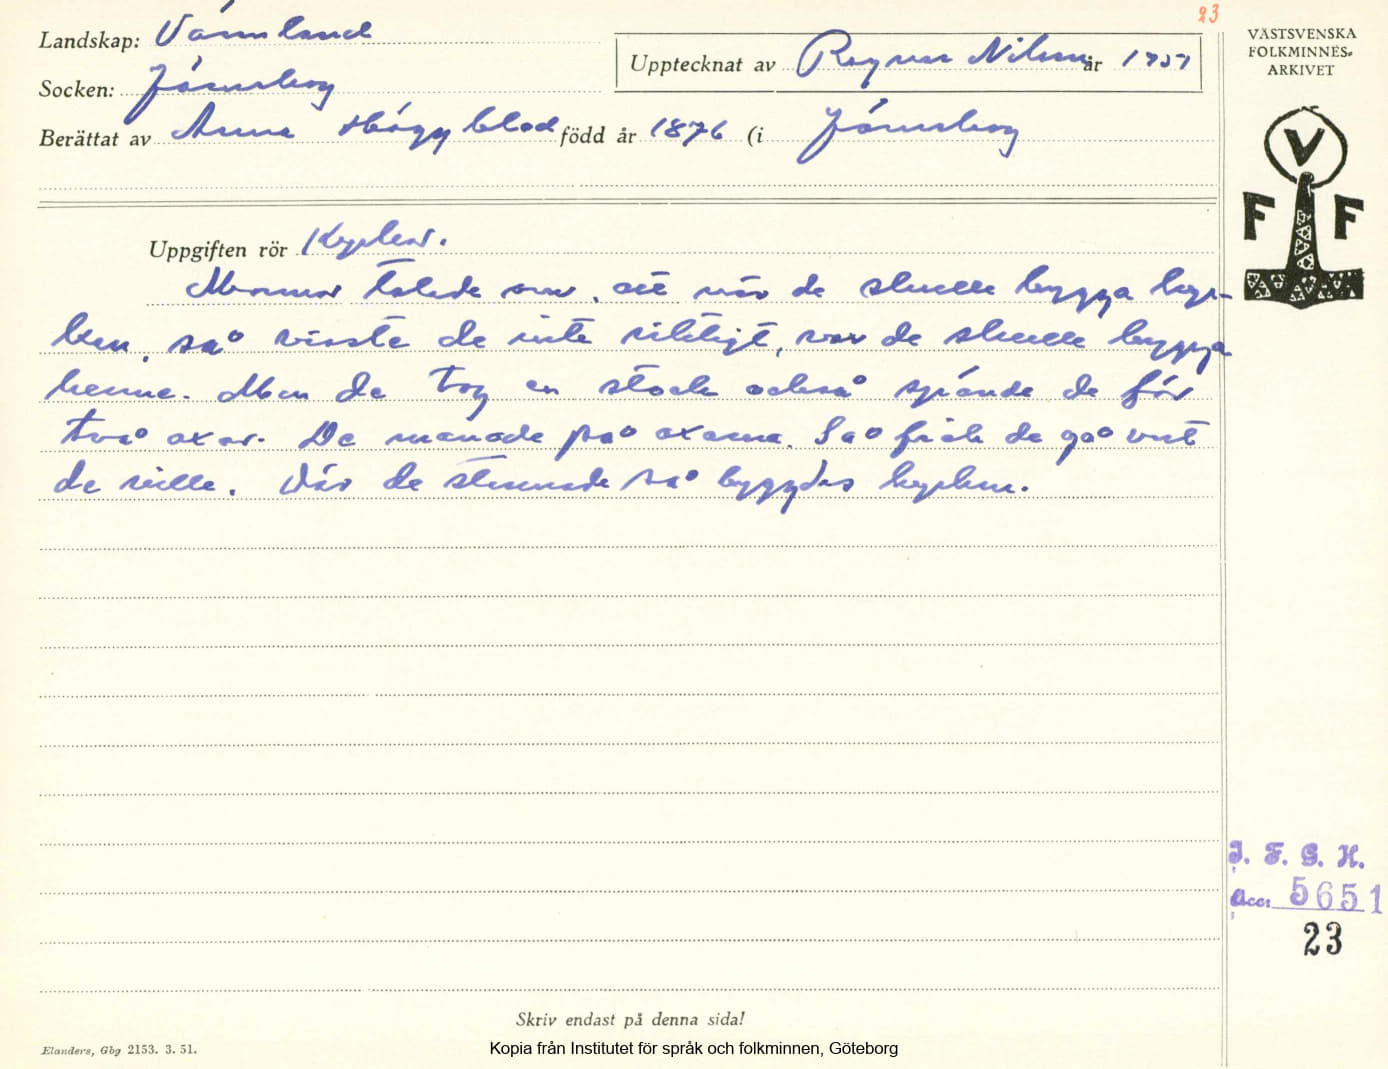 23
Landskap: Värmland
Upptecknat av Ragnar Nilsson år 1957
VÄSTSVENSKA
FOLKMINNES-
ARKIVET
Socken: Järnskog
Berättat av Anna Höggblad född år 1876 (i Järnskog
V
F F
Uppgiften rör Kyrkor.
Mormor talade om, att när de skulle bygga kyr-
kan, så visste de inte riktigt, var de skulle bygga
henne. Men de tog en stock också spände de för
två oxar. De manade på oxarna. Så fick de gå vart
de ville. Där de stannade så byggdes kyrkan.
I. F. G. H.
Acc: 5651
23
Skriv endast på denna sida!
Elanders, Gbg 2153. 3. 51.
Kopia från Institutet för språk och folkminnen, Göteborg